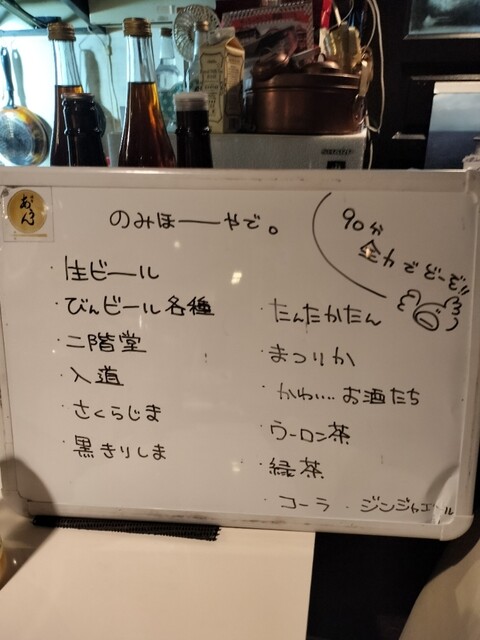 のみほーーやで。
90分
全力でどーぞ!!
・生ビール
・びんビール各種
・二階堂
・入道
・さくらじま
・黒きりしま
・たんたかたん
・まつりか
・かわいい お酒たち
・ウーロン茶
・緑茶
・コーラ ・ジンジャエール